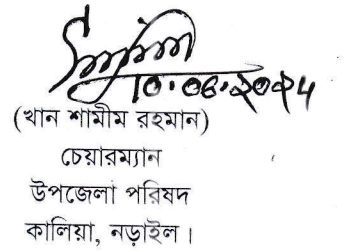 ১০.০৬.২০২৪
(খান শামীম রহমান)
চেয়ারম্যান
উপজেলা পরিষদ
কালিয়া, নড়াইল।